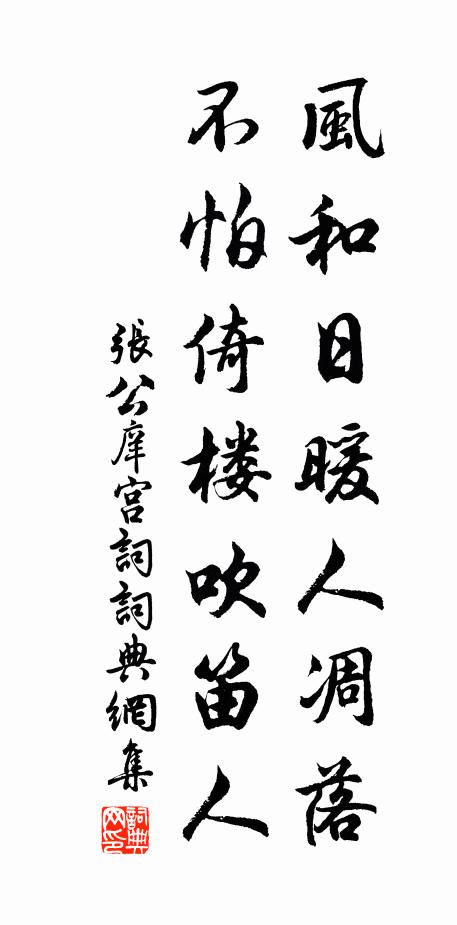 風和日暖人凋落
不怕倚楼吹笛人
張公庠宮詞詞典網集
詞典网印